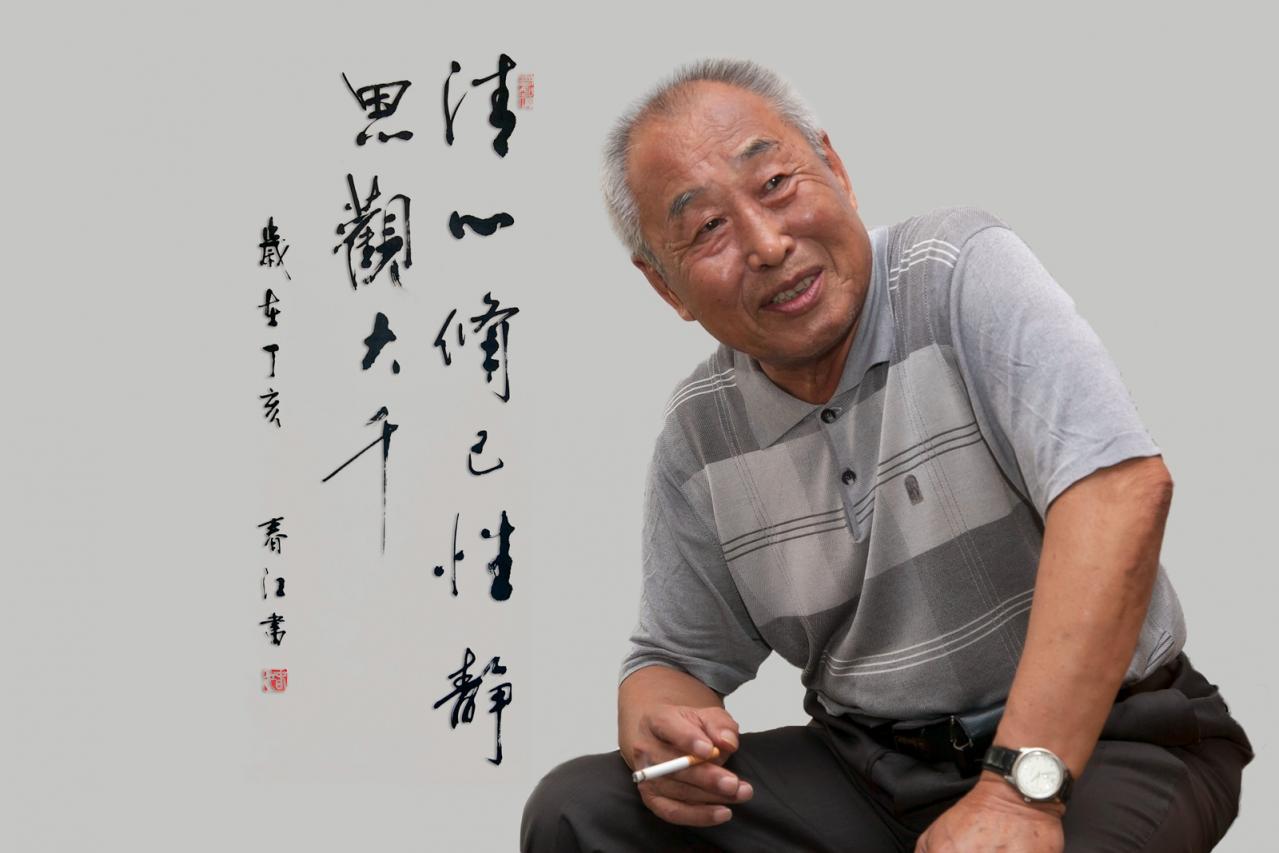 清心修己性靜
思觀大千
歲在丁亥
春江書